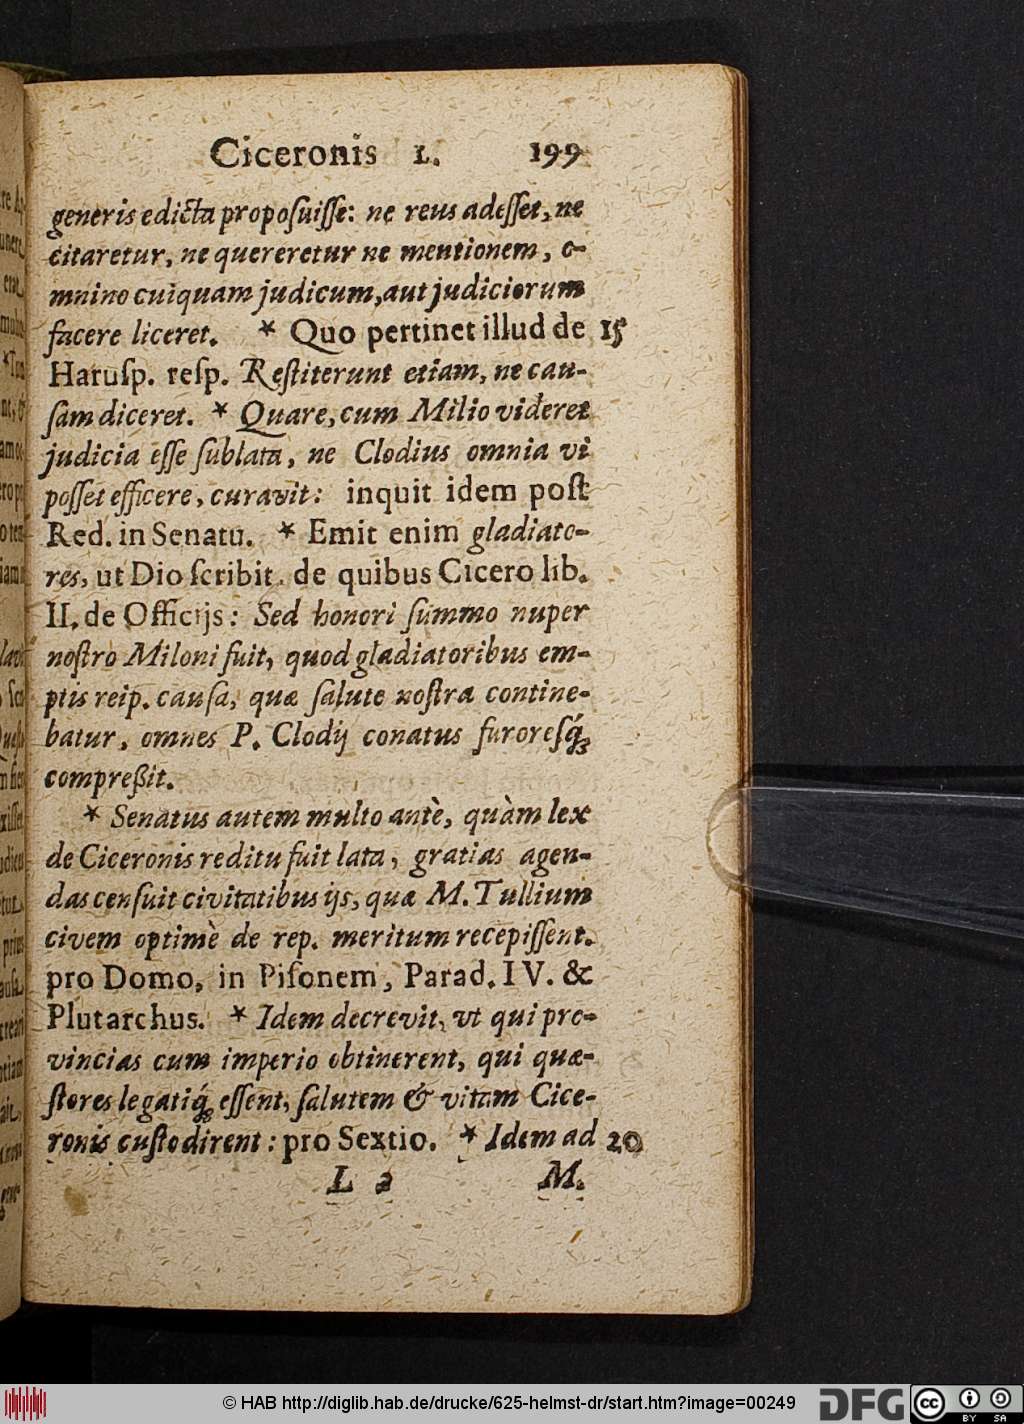 Ciceronis L. 199
generis edicta proposuiſſe: ne reus adeſſet, ne
citaretur, ne quereretur ne mentionem, o-
mnino cuiquam judicum, aut judiciorum
facere liceret. * Quo pertinet illud de 15
Haruſp. reſp. Reſtiterunt etiam, ne cau-
ſam diceret. * Quare, cum Milio videret
judicia eſſe ſublata, ne Clodius omnia vi
poſſet efficere, curavit: inquit idem poſt
Red. in Senatu. * Emit enim gladiato-
res, ut Dio ſcribit. de quibus Cicero lib.
II. de Officijs: Sed honori ſummo nuper
noſtro Miloni fuit, quod gladiatoribus em-
ptis reip. cauſa, quæ ſalute noſtra contine-
batur, omnes P. Clodij conatus furoreſq́;
compreßit.
* Senatus autem multo antè, quàm lex
de Ciceronis reditu fuit lata, gratias agen-
das cenſuit civitatibus ijs, quæ M. Tullium
civem optimè de rep. meritum recepiſſent.
pro Domo, in Piſonem, Parad. IV. &
Plutarchus. * Idem decrevit, vt qui pro-
vincias cum imperio obtinerent, qui quæ-
ſtores legatiq́; eſſent, ſalutem & vitam Cice-
ronis cuſtodirent: pro Sextio. * Idem ad 20
L 2 M.
© HAB http://diglib.hab.de/drucke/625-helmst-dr/start.htm?image=00249
DFG
cc BY SA